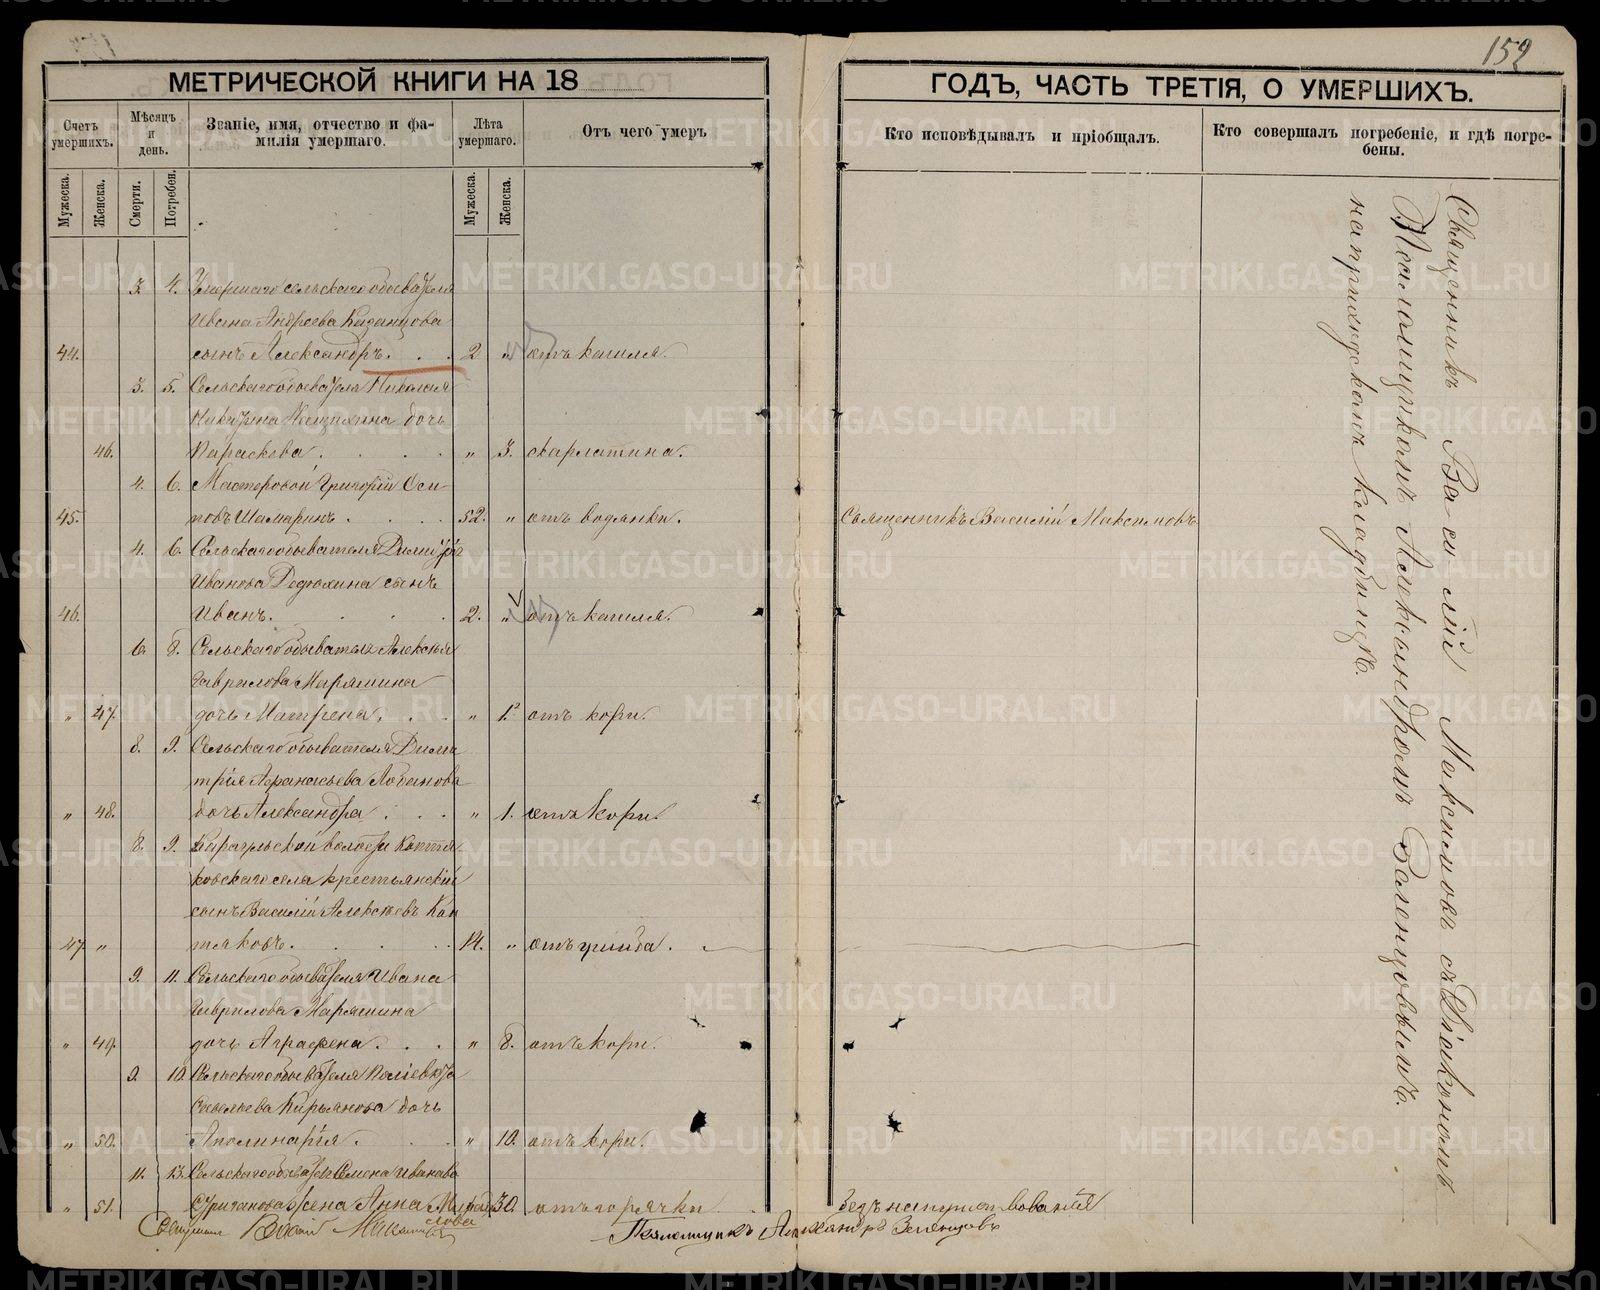 152
МЕТРИЧЕСКОЙ КНИГИ НА 18
ГОДЪ, ЧАСТЬ ТРЕТІЯ, О УМЕРШИХЪ.
Счетъ умершихъ.
Мѣсяцъ и день.
Званіе, имя, отчество и фа-
милія умершаго.
Лѣта умершаго.
Отъ чего умеръ
Кто исповѣдывалъ и пріобщалъ.
Кто совершалъ погребеніе, и гдѣ погре-
бены.
Мужеска. Женска. Смерти. Погребен. Мужеска. Женска.
3. 4. Умершаго сельскаго обывателя
Ивана Андреева Казанцова
44. сынъ Александръ. 2 " отъ кашля.
3. 5. Сельскаго обывателя Николая
дочь
46. Параскева. " 3. скарлатина.
4. 6. Мастеровой Григорій Оси-
45. повъ Шамаринъ. 52. " отъ водянки. Священникъ Василій Максимовъ
4. 6. Сельскаго обывателя Димитрія
Иванова Дедюхина сынъ
46. Иванъ. 2. " отъ кашля.
6. 8. Сельскаго обывателя Алексѣя
Гаврилова Маряшина
" 47. дочь Матрена. " 1. отъ кори.
8. 9. Сельскаго обывателя Дими
трія Афанасьева Лобанова
" 48. дочь Александра. " 1. отъ кори.
8. 9. волости
ковскаго села крестьянскій
сынъ Василій Алексѣевъ Кап
47. " тяковъ. 14. " отъ ушиба.
9. 11. Сельскаго обывателя Ивана
Гаврилова Маряшина
" 49. дочь Аграфена. " 8. отъ кори.
9. 10. Сельскаго обывателя Поліевкта
Савельева Кирьянова дочь
" 50. Аполинарія. " 10. отъ кори.
11. 13. Сельскаго обывателя Семена Иванова
" 51. жена Анна 30. отъ горячки. безъ напутствованія
Священникъ Василій Максимовъ
Псаломщикъ Александръ Зеленцовъ
Священникъ Василій Максимовъ съ Діакономъ
Псаломщикомъ Александромъ Зеленцовымъ.
на приходскомъ кладбищѣ.
METRIKI.GASO-URAL.RU